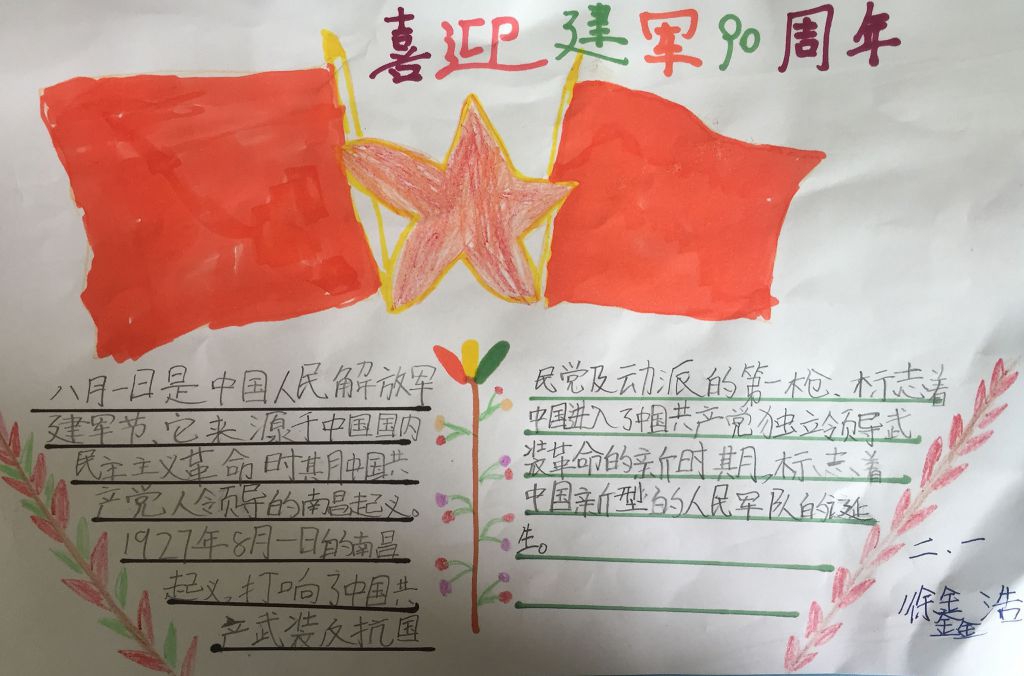 喜迎建军90周年
八月一日是中国人民解放军
建军节、它来源于中国国内
民主主义革命时期中国共
产党人领导的南昌起义。
1927年8月一日的南昌
起义，打响了中国共
产武装反抗国
民党反动派的第一枪、标志着
中国进入了中国共产党独立领导武
装革命的新时期，标志着
中国新型的人民军队的诞
生。
二、一
徐鑫浩